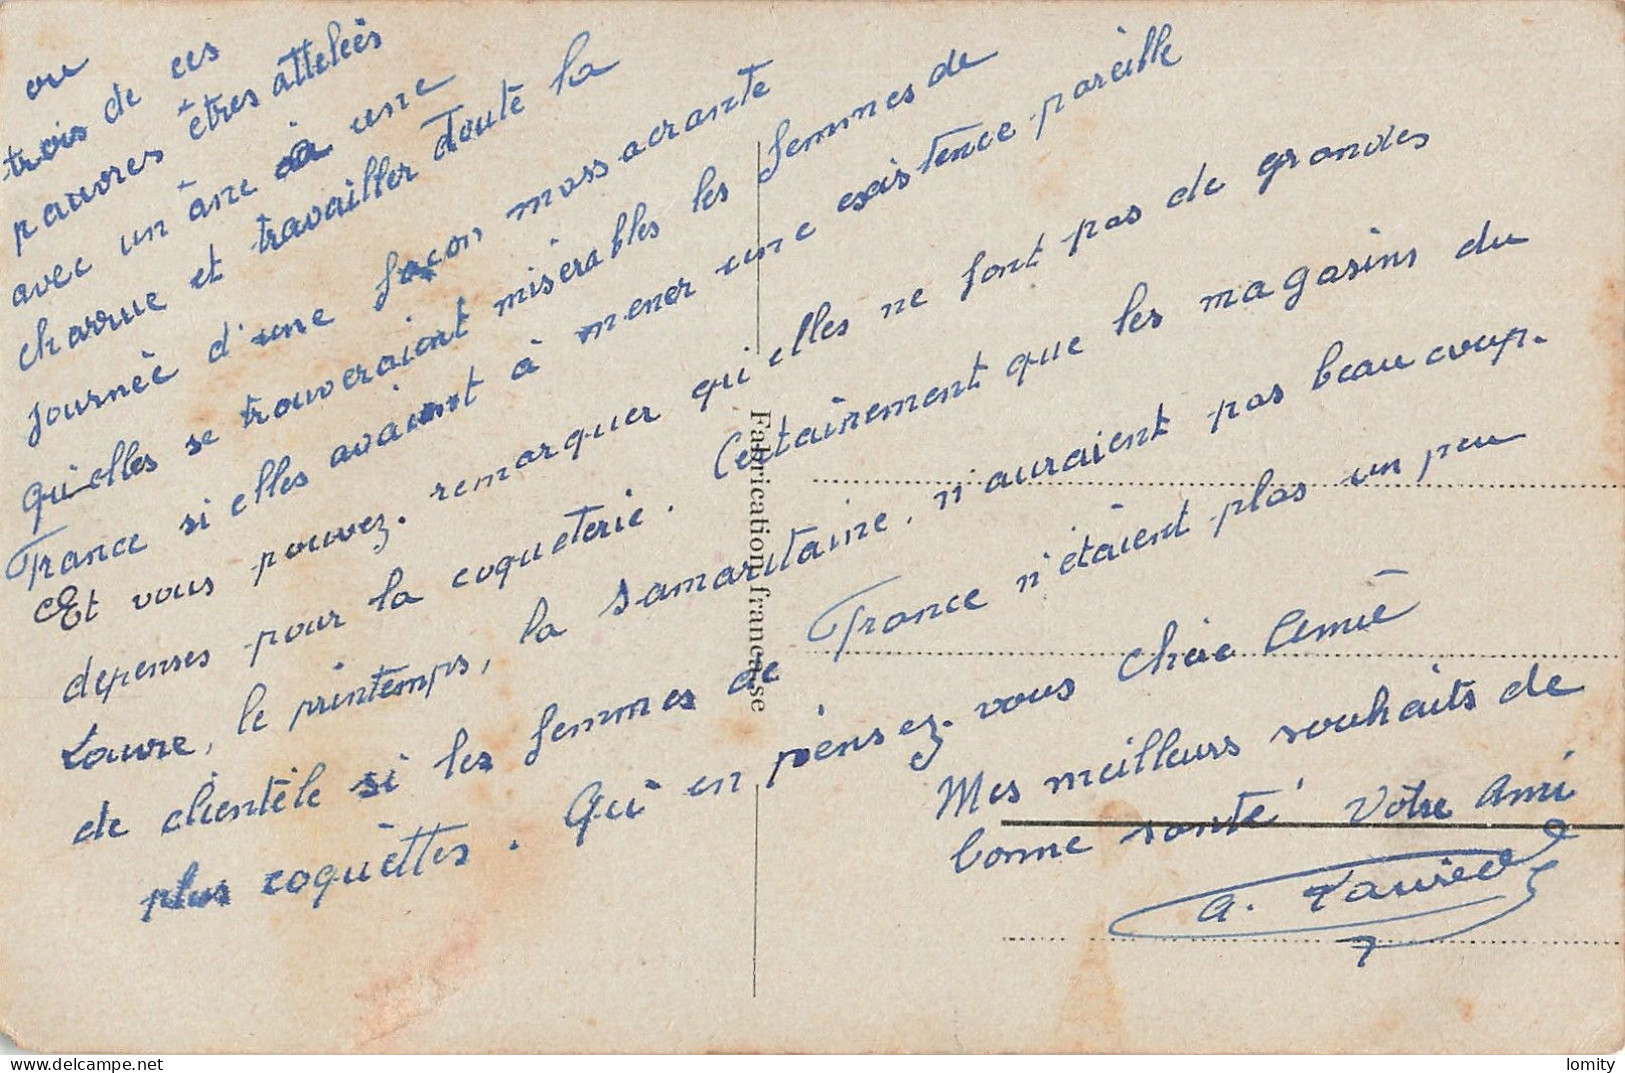 ou
trois de ces
pauvres êtres attelées
avec un âne à une
charrue et travailler toute la
journée d'une façon massacrante
qu'elles se trouveraient misérables les femmes de
France si elles avaient à mener une existence pareille
Et vous pouvez. remarquer qu'elles ne font pas de grandes
depenses pour la coqueterie. Certainement que les magasins du
Louvre, le printemps, la samaritaine, n'auraient pas beaucoup.
de clientèle si les femmes de France n'étaient plas un peu
plus coquèttes. Qu'en pensez-vous Chère Amie
Mes meilleurs souhaits de
bonne santé Votre Ami
a.
Fabrication française
lomity